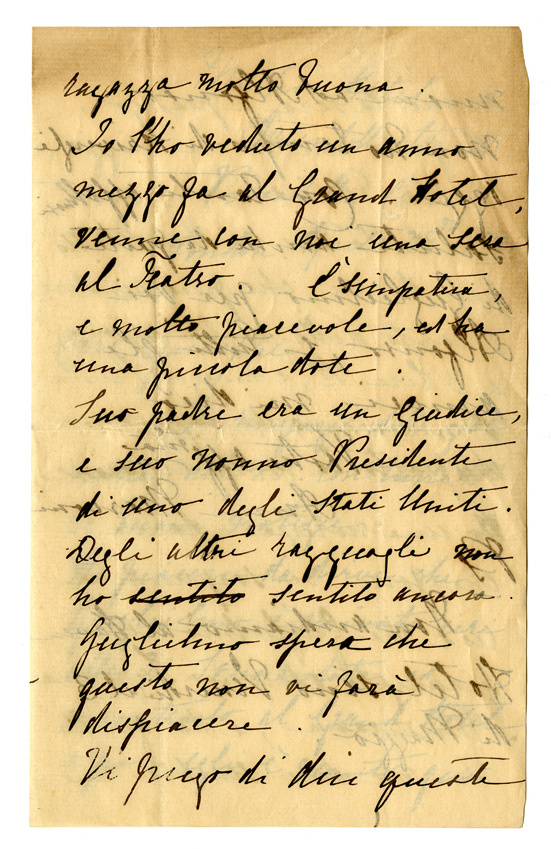 ragazza molto buona.
Io l'ho veduto un anno
mezzo fa al Grand Hotel,
venne con noi una sera
al Teatro. È simpatica,
e molto piacevole, ed ha
una piccola dote.
Suo padre era un Giudice,
e suo nonno Presidente
di uno degli Stati Uniti.
Degli altri ragguagli non
ho sentito sentito ancora.
Guglielmo spera che
questo non vi farà
dispiacere.
Vi prego di dire queste